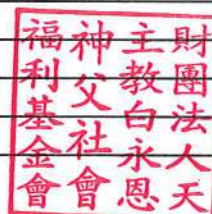 財團法人天
主教白永恩
神父社會
福利基金會